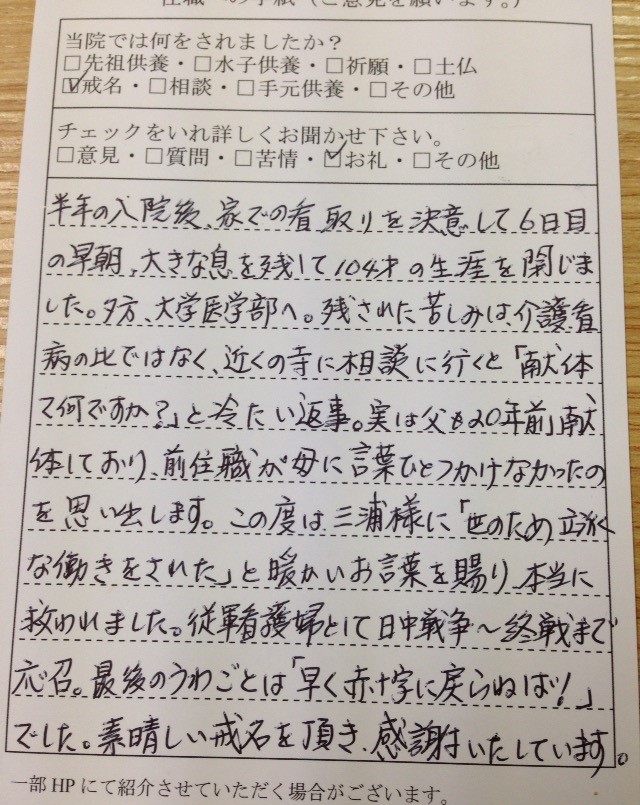 住職への手紙（ご意見を願います。）
当院では何をされましたか？
□先祖供養・□水子供養・□祈願・□土仏
☑戒名・□相談・□手元供養・□その他
チェックをいれ詳しくお聞かせ下さい。
□意見・□質問・□苦情・☑お礼・□その他
半年の入院後、家での看取りを決意して6日目
の早朝、大きな息を残して104才の生涯を閉じま
した。夕方、大学医学部へ。残された苦しみは、介護、看
病の比ではなく、近くの寺に相談に行くと「献体
て何ですか？」と冷たい返事。実は父も20年前」献
体しており、前住職が母に言葉ひとつかけなかったの
を思い出します。この度は三浦様に「世のため立派
な働きをされた」と暖かいお言葉を賜り、本当に
救われました。従軍看護婦として日中戦争～終戦まで
応召。最後のうわごとは「早く赤十字に戻らねば！」
でした。素晴しい戒名を頂き、感謝いたしています。
一部HPにて紹介させていただく場合がございます。